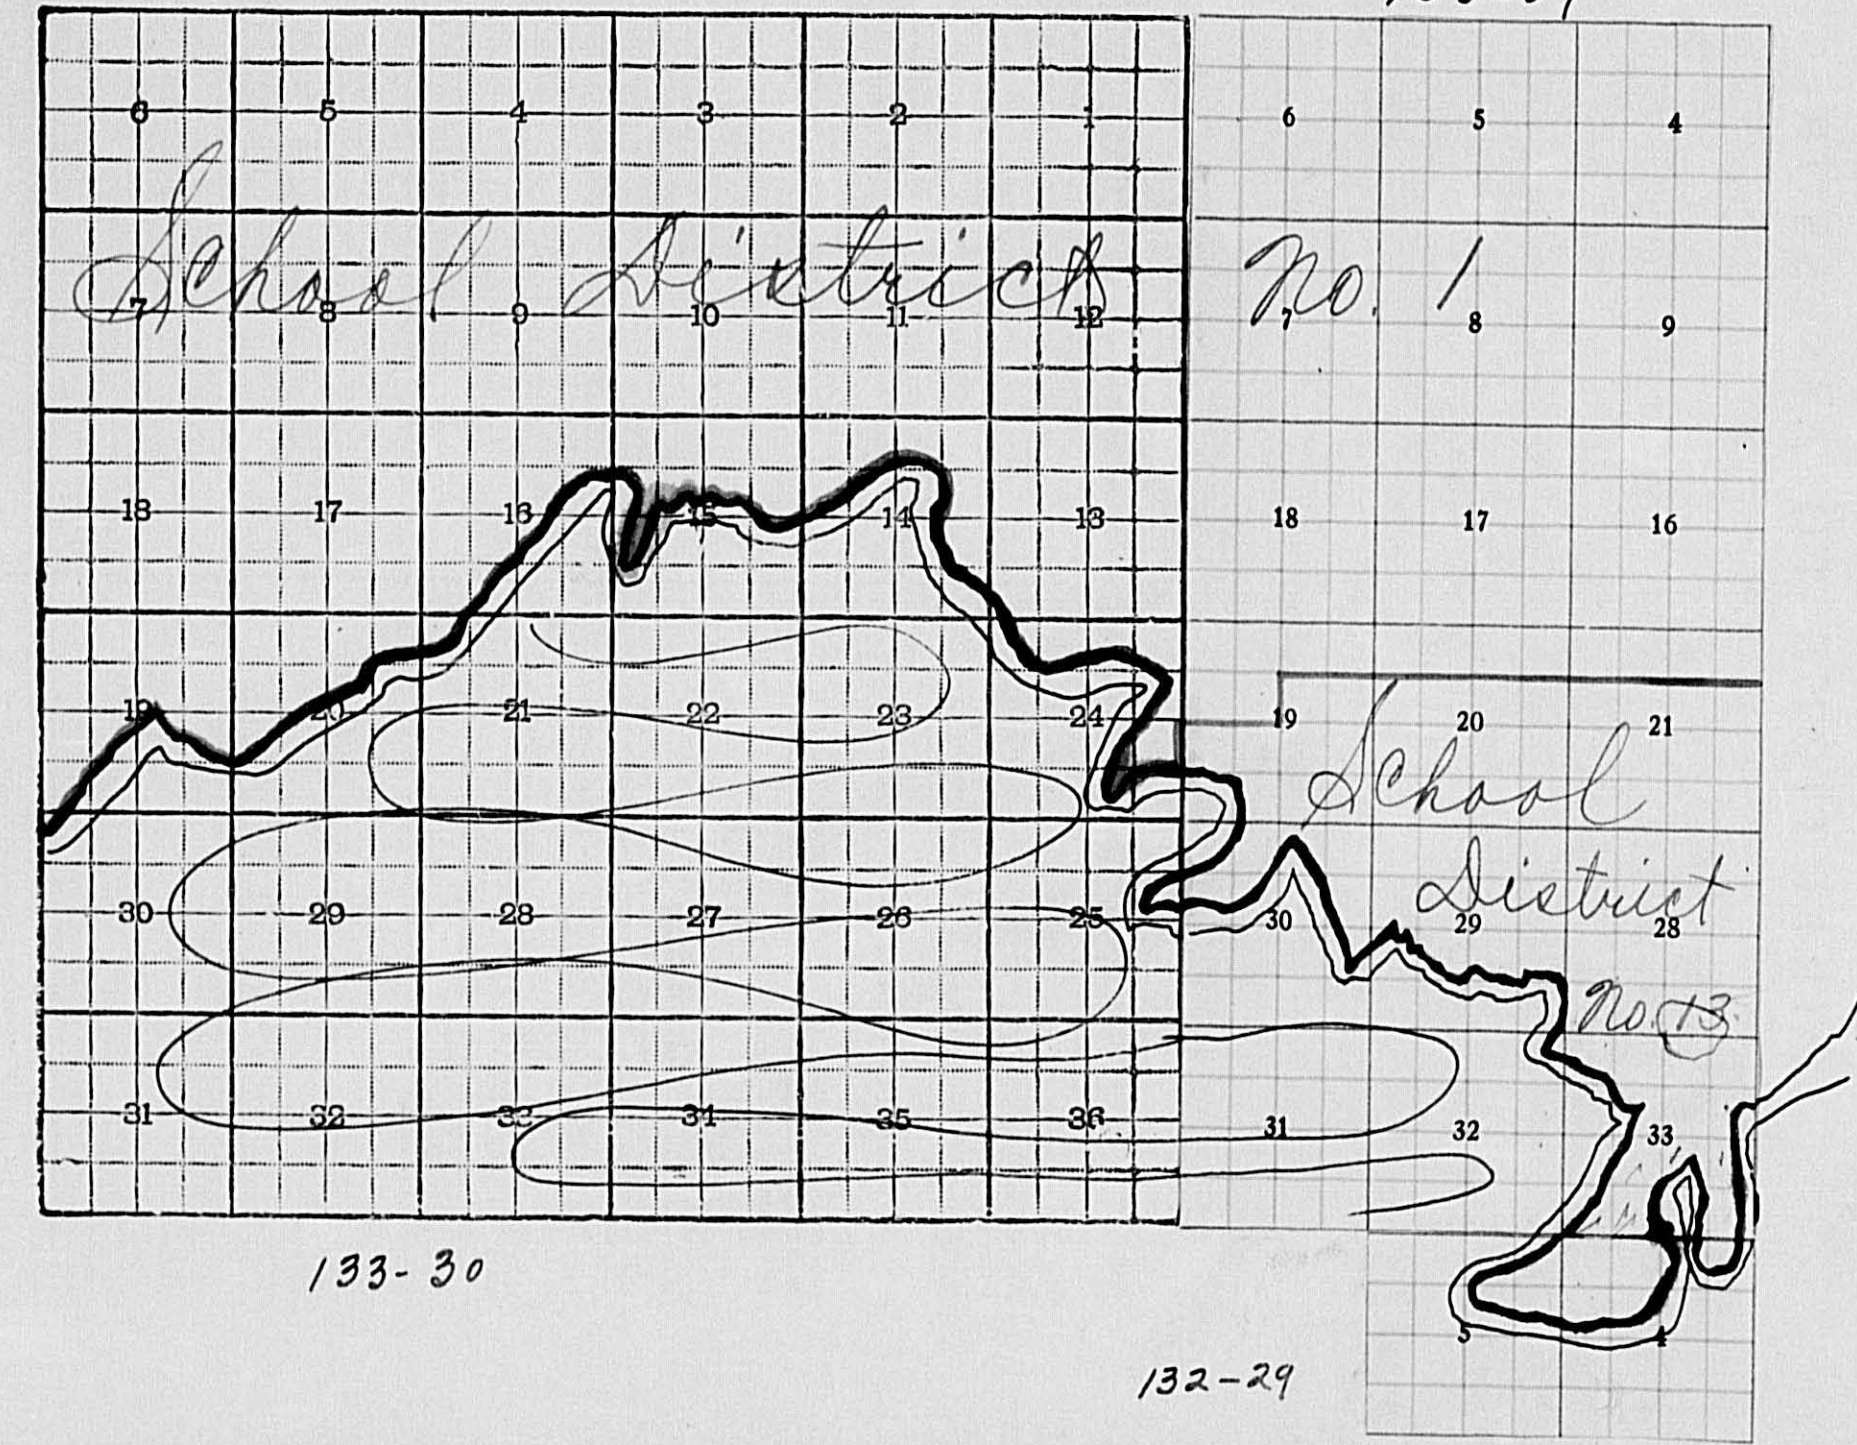 6 5 4 3 2 1 6 5 4
School District No. 1
7 8 9 10 11 12 7 8 9
18 17 16 15 14 13 18 17 16
19 20 21 22 23 24 19 20 21
School
District
30 29 28 27 26 25 30 29 28
No. 13
31 32 33 34 35 36 31 32 33
133-30
5 4
132-29